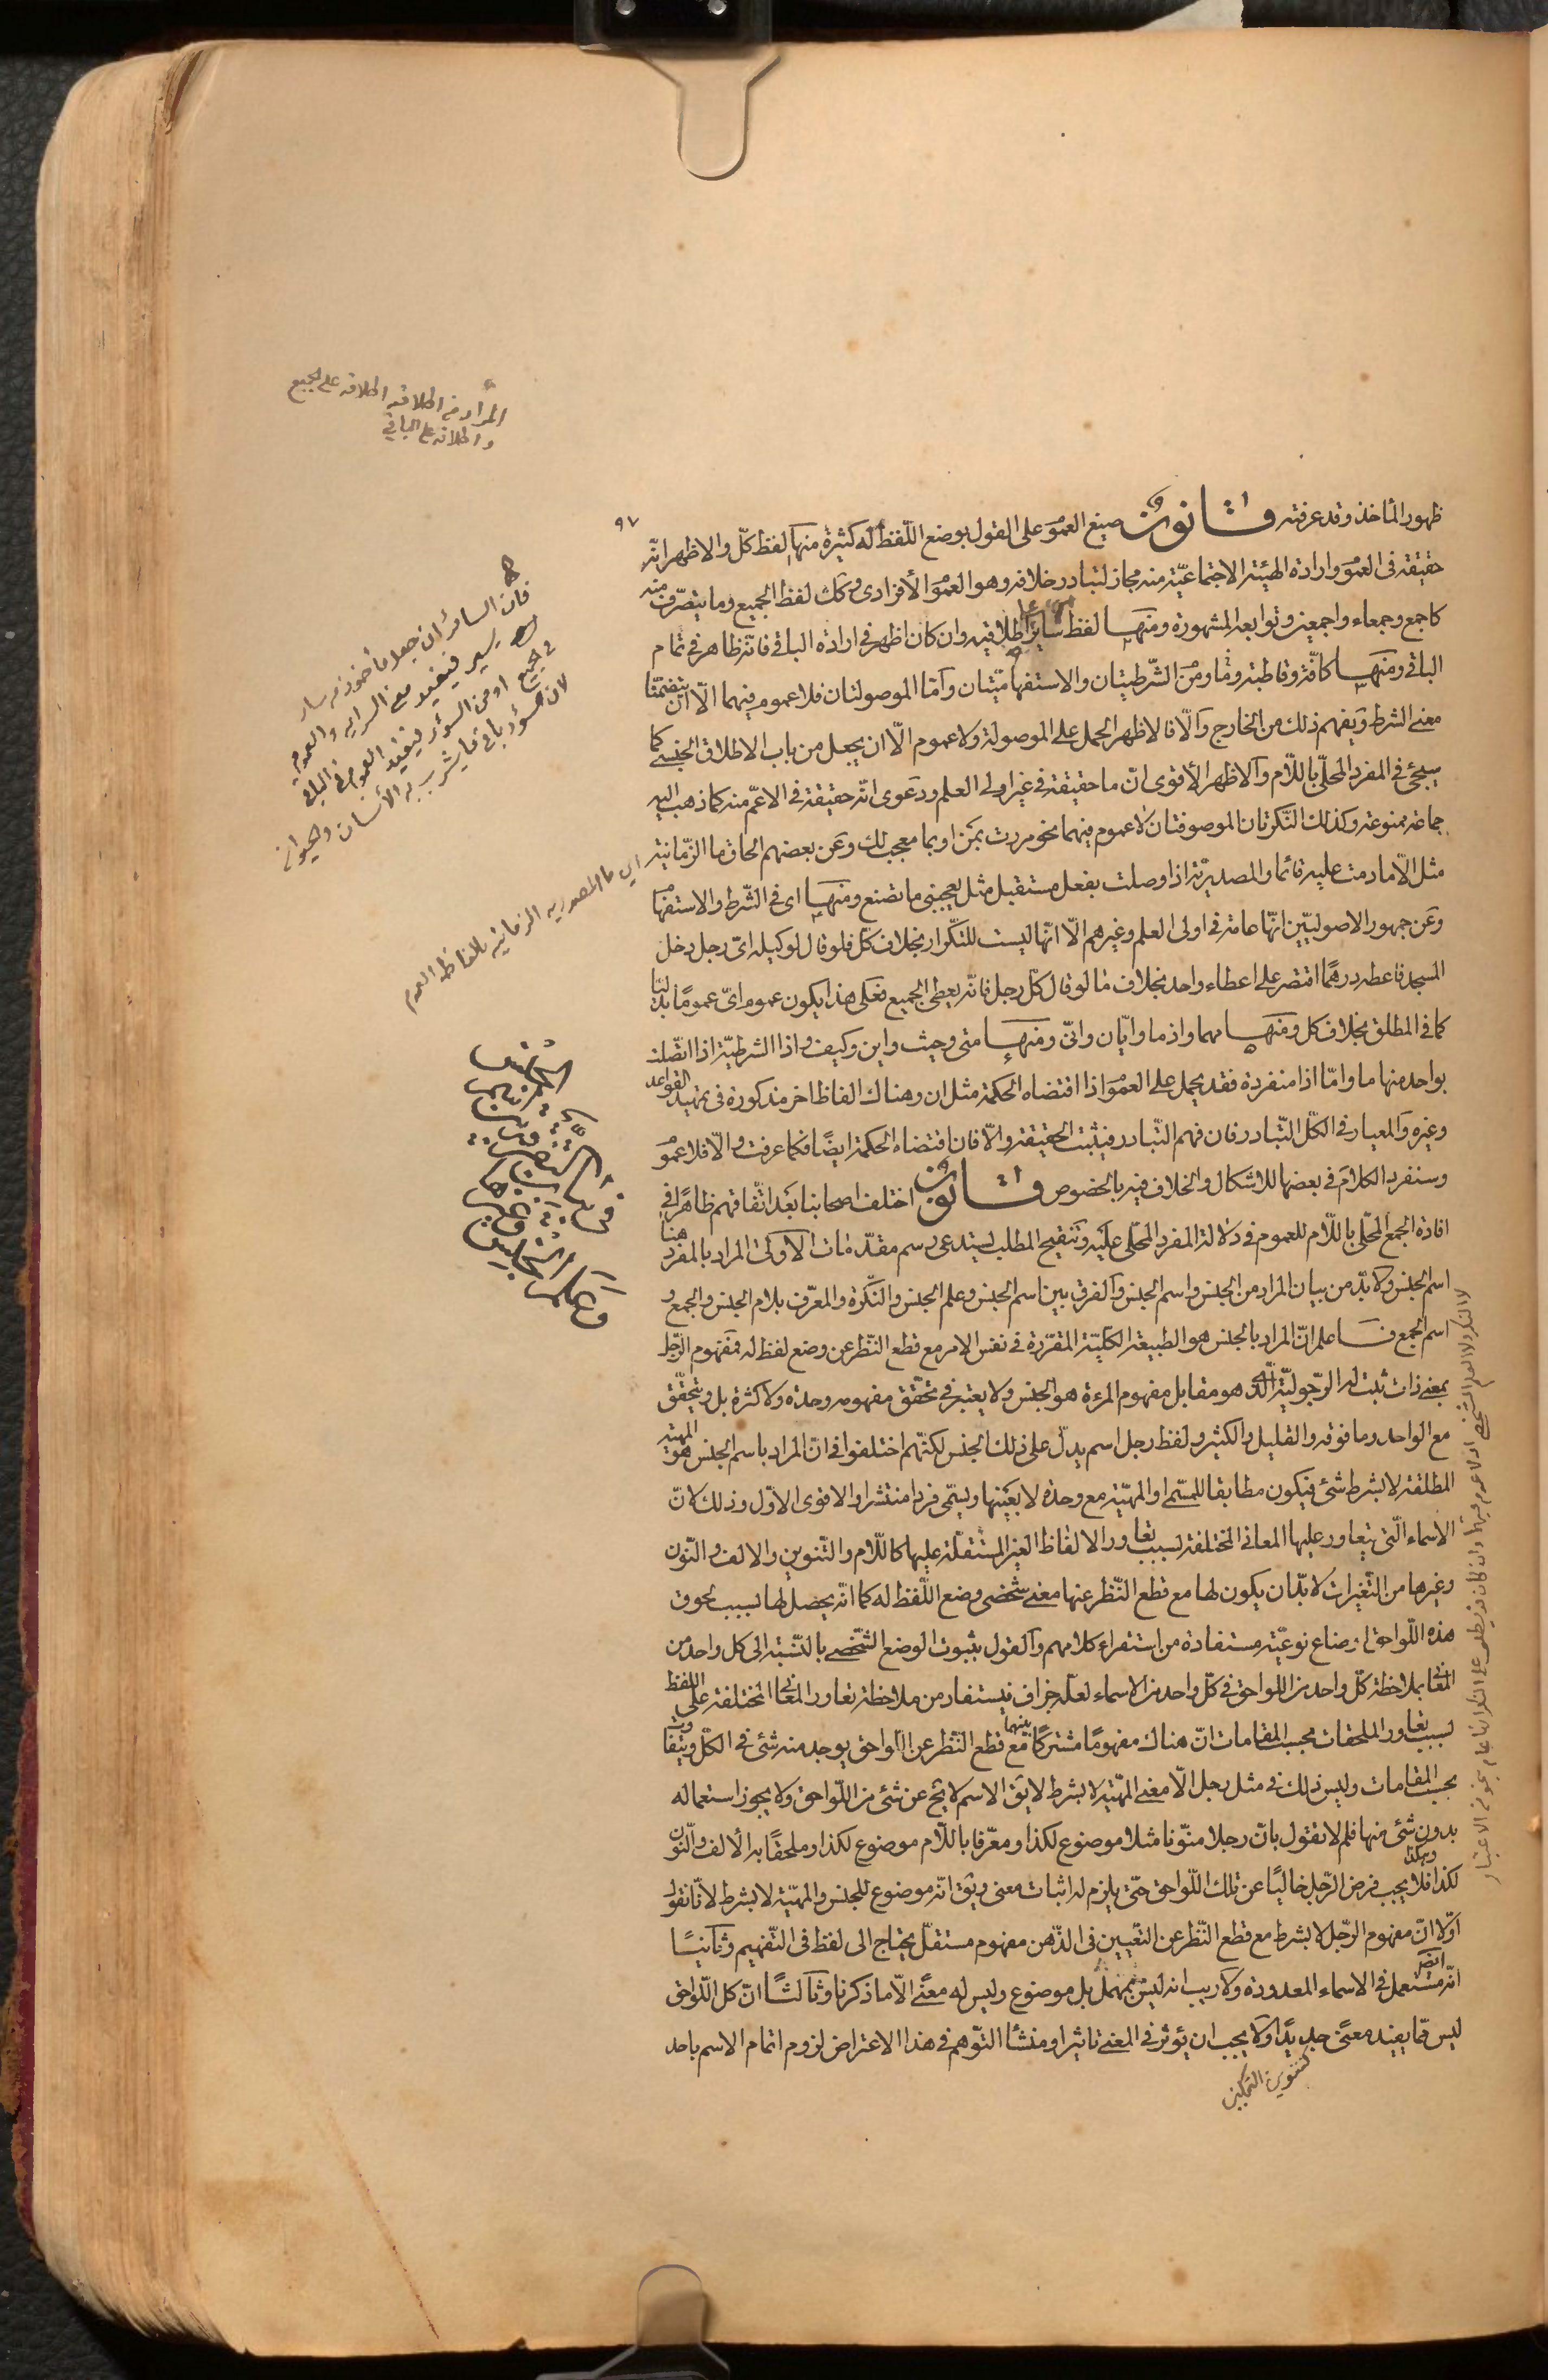 ظهور المأخذ وقد عرفته قانون صيغ العموم على القول بوضع اللفظ له كثيرة منها لفظ كلّ والاظهر انّه
حقيقة فى العموم وارادة الهيئة الاجتماعيّة منه مجاز لتبادر خلافه وهو العموم الأفرادى وكك لفظ الجميع وما يتصرّف منه
كاجمع وجمعاء واجمعين وتوابعه المشهورة ومنها لفظ ساير على اطلاقيه وان كان اظهر فى ارادة الباقى فانّه ظاهر فى تمام
الباقى ومنها كافّة وقاطبة وما ومن الشّرطيتان والاستفهاميّتان وأمّا الموصولتان فلا عموم فيهما الّا ان يتضمّنا
معنى الشرط ويفهم ذلك من الخارج والّا فالاظهر الحمل على الموصولة ولا عموم الّا ان يجعل من باب الاطلاق الجنسى كما
سيجئ فى المفرد المحلّى باللّام والاظهر الأقوى انّ ما حقيقة فى غير اولى العلم ودعوى انّه حقيقة فى الاعمّ منه كما ذهب اليه
جماعة ممنوعة وكذلك النّكرتان الموصوفتان لا عموم فيهما نحو مررت بمن او بما معجب لك وعن بعضهم الحاق ما الزّمانية
مثل الّا ما دمت عليه قائما والمصدريّة اذا وصلت بفعل مستقبل مثل يعجبنى ما تصنع ومنها اى فى الشّرط والاستفهام
وعن جمهور الاصوليّين انّها عامّة فى اولى العلم وغيرهم الّا انّها ليست للتّكرار بخلاف كلّ فلو قال لوكيله اىّ رجل دخل
المسجد فاعطه درهمًا اقتصر على اعطاء واحد بخلاف ما لو قال كلّ رجل فانّه يعطى الجميع فعلى هذا يكون عموم اىّ عمومًا بدليّا
كما فى المطلق بخلاف كل ومنها مهما واذ ما وايّان وانّى ومنها متى وحيث واين وكيف واذا الشرطيّة اذا اتّصلت
بواحد منها ما وامّا اذا منفردة فقد يحمل على العموم اذا اقتضاه الحكمة مثل ان وهناك الفاظ اخر مذكورة فى تمهيد القواعد
وغيره والمعيار فى الكلّ التّبادر فان فهم التّبادر فيثبت الحقيقة والّا فان اقتضاه الحكمة ايضًا فكما عرفت والّا فلا عموم
وسنفرد الكلام فى بعضها للاشكال والخلاف فيه بالخصوص قانون اختلف اصحابنا بعد اتّفاقهم ظاهرًا فى
افادة الجمع المحلّى باللّام للعموم فى دلالة المفرد المحلّى عليه وتنقيح المطلب يستدعى رسم مقدّمات الاولى المراد بالمفرد هنا
اسم الجنس ولا بدّ من بيان المراد من الجنس واسم الجنس والفرق بين اسم الجنس وعلم الجنس والنّكرة والمعرّف بلام الجنس والجمع و
اسم الجمع فاعلم انّ المراد بالجنس هو الطبيعة الكلّيّة المقرّرة فى نفس الامر مع قطع النّظر عن وضع لفظ له فمفهوم الرّجل
بمعنى ذات ثبت له الرّجوليّة الّذى هو مقابل مفهوم المرءة هو الجنس ولا يعتبر فى تحقّق مفهومه وحدة ولا كثرة بل ويتحقّق
مع الواحد وما فوقه والقليل والكثير ولفظ رجل اسم يدلّ على ذلك الجنس لكنّهم اختلفوا فى انّ المراد باسم الجنس هو المهيّة
المطلقة لا بشرط شئ فيكون مطابقا للمسمّى او المهيّة مع وحدة لا بعينها ويسمّى فردا منتشرا والاقوى الاوّل وذلك لانّ
الاسماء الّتى يتعاور عليها المعانى المختلفة بسبب تعاور الالفاظ الغير المستقلّة عليها كاللّام والتّنوين والالف والنّون
وغيرها من التّغيرات لا بدّ ان يكون لها مع قطع النّظر عنها معنى شخصى وضع اللّفظ له كما انّه يحصل لها بسبب لحوق
هذه اللّواحق اوضاع نوعيّة مستفادة من استقراء كلامهم والقول بثبوت الوضع الشّخصى بالنّسبة الى كل واحد من
المعانى بملاحظة كلّ واحد من اللواحق فى كلّ واحد من الاسماء لعلّه جزاف فيستفاد من ملاحظة تعاور المعانى المختلفة على اللفظ
بسبب تعاور الملحقات بحسب المقامات انّ هناك مفهومًا مشتركًا بينهما مع قطع النّظر عن اللّواحق يوجد منه شئ فى الكلّ ويتفاوت
بحسب المقامات وليس ذلك فى مثل رجل الّا معنى المهيّة لا بشرط لا يق الاسم لا يخ عن شئ من اللّواحق ولا يجوز استعماله
بدون شئ منها فلم لا نقول بانّ رجلا منوّنا مثلا موضوع لكذا ومعرّفا باللّام موضوع لكذا وملحقًا به الألف والنّون
لكذا وهكذا فلا يجب فرض الرّجل خاليًا عن تلك اللّواحق حتّى يلزم له اثبات معنى ويق انّه موضوع للجنس والمهيّة لا بشرط لأنّا نقول
اوّلا انّ مفهوم الرّجل لا بشرط مع قطع النّظر عن التعيين فى الذّهن مفهوم مستقلّ يحتاج الى لفظ فى التّفهيم وثانيًا
انّه مستعمل فى الاسماء المعدودة ولا ريب انه ليس بمهمل بل موضوع وليس له معنًى الّا ما ذكرنا وثالثًا انّ كل اللّواحق
ليس ممّا يفيده معنًى جديدًا ولا يجب ان يؤثر فى المعنى تاثيرا ومنشأ التّوهم فى هذا الاعتراض لزوم اتمام الاسم باحد
كتنوين التمكين
٩٧
المراد من اطلاقيه اطلاقه على الجميع
واطلاقه على الباقى
فان السائر ان جعل مأخوذ من سار
يسير فيفيد معنى السراية والعموم
فى الجميع او من السؤر فيفيد العموم فى الباقى
لان السؤر باقى ما يشرب به الأنسان والحيوان
اى ما المصدرية الزمانية بالفاظ العموم